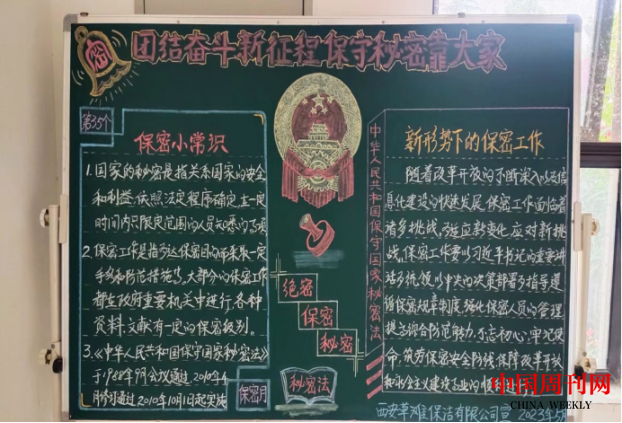 密
团结奋斗新征程 保守秘密靠大家
第35个
保密小常识
1.国家的秘密是指关系国家的安全
和利益,依照法定程序确定,在一定
时间内只限定范围的人员知悉的事项
2.保密工作是指为达保密目的而采取一定
手段和防范措施等,大部分的保密工作
都在政府重要机关中进行,各种
资料、文献有一定的保密级别。
3.《中华人民共和国保守国家秘密法》
于1988年9月会议通过,2010年4
月修订通过,2010年10月1日起实施
保密月
绝密
保密
秘密
秘密法
中华人民共和国保守国家秘密法
新形势下的保密工作
随着改革开放的不断深入以及信
息化建设的快速发展,保密工作面临着
诸多挑战,为适应新变化,应对新挑
战,保密工作要以习近平书记的重要讲
话为统领,以中央的决策部署为指导,遵
循保密规章制度,强化保密人员的管理,
提高综合防范能力,不忘初心,牢记使
命,筑劳保密安全防线,保障改革开放
和社会主义建设
西安 保洁有限公司宣 2023年5月
中国周刊网
CHINA WEEKLY